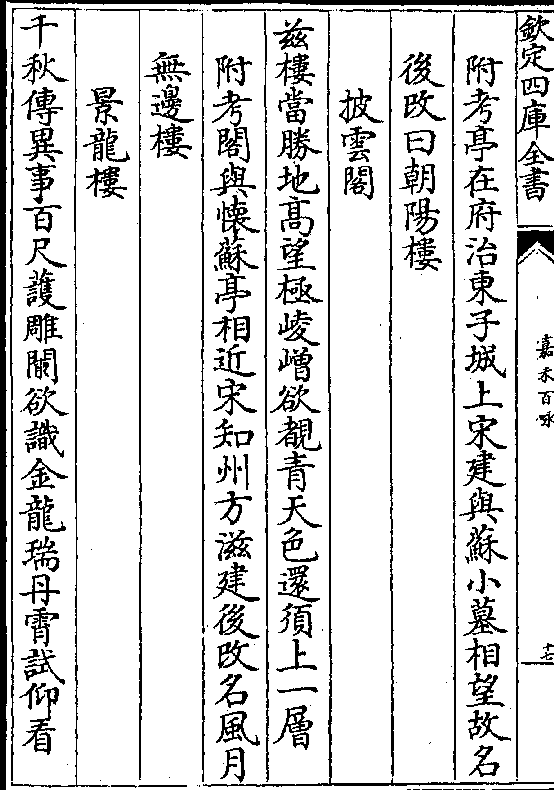 欽定四庫全書
嘉禾百咏
附考亭在府治東子城上宋建與蘇小墓相望故名
後改曰朝陽樓
披雲閣
兹樓當勝地髙望極崚嶒欲覩青天色還須上一層
附考閣與懐蘇亭相近宋知州方滋建後改名風月
無邊樓
景龍樓
千秋傳異事百尺護雕闌欲識金龍瑞丹霄試仰看